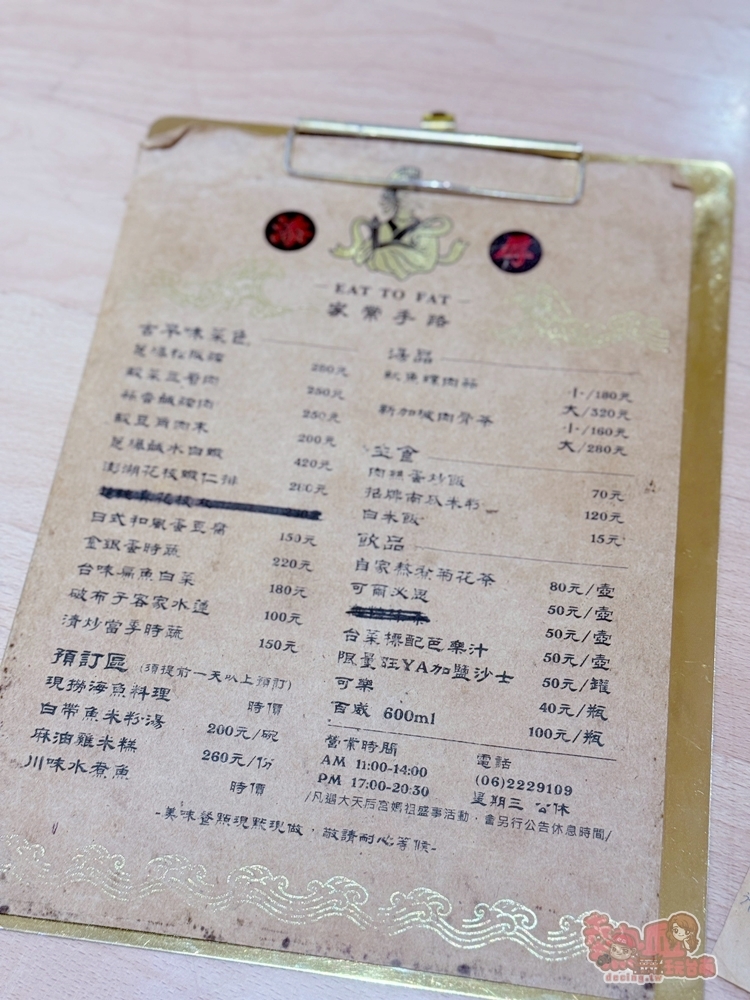 添
丹
EAT TO FAT
家常手路
古早味菜色
蔥爆松阪豬 280元
穀菜豆醬肉 250元
蒜香鹹豬肉 250元
穀豆角肉末 200元
蔥爆鹹水白蝦 420元
澎湖花枝蝦仁排 200元
日式和風蛋豆腐 150元
金銀蛋時蔬 220元
台味扁魚白菜 180元
破布子客家水蓮 100元
清炒當季時蔬 150元
預訂區 (須提前一天以上預訂)
現撈海魚料理 時價
白帶魚米粉湯 200元/碗
麻油雞米糕 260元/份
川味水煮魚 時價
湯品
魷魚螺肉蒜 小/180元
大/320元
新加坡肉骨茶 小/160元
大/280元
主食
肉絲蛋炒飯 70元
招牌南瓜米粉 120元
白米飯 15元
飲品
自家熬煮菊花茶 80元/壺
可爾必思 50元/壺
50元/壺
台菜標配芭樂汁 50元/壺
限量狂YA加鹽沙士 50元/罐
可樂 40元/瓶
百威 600ml 100元/瓶
營業時間
AM 11:00-14:00
PM 17:00-20:30
電話
(06)2229109
星期三 公休
/凡遇大天后宮媽祖盛事活動,會另行公告休息時間/
-美味餐點現點現做,敬請耐心等候-
decing.tw